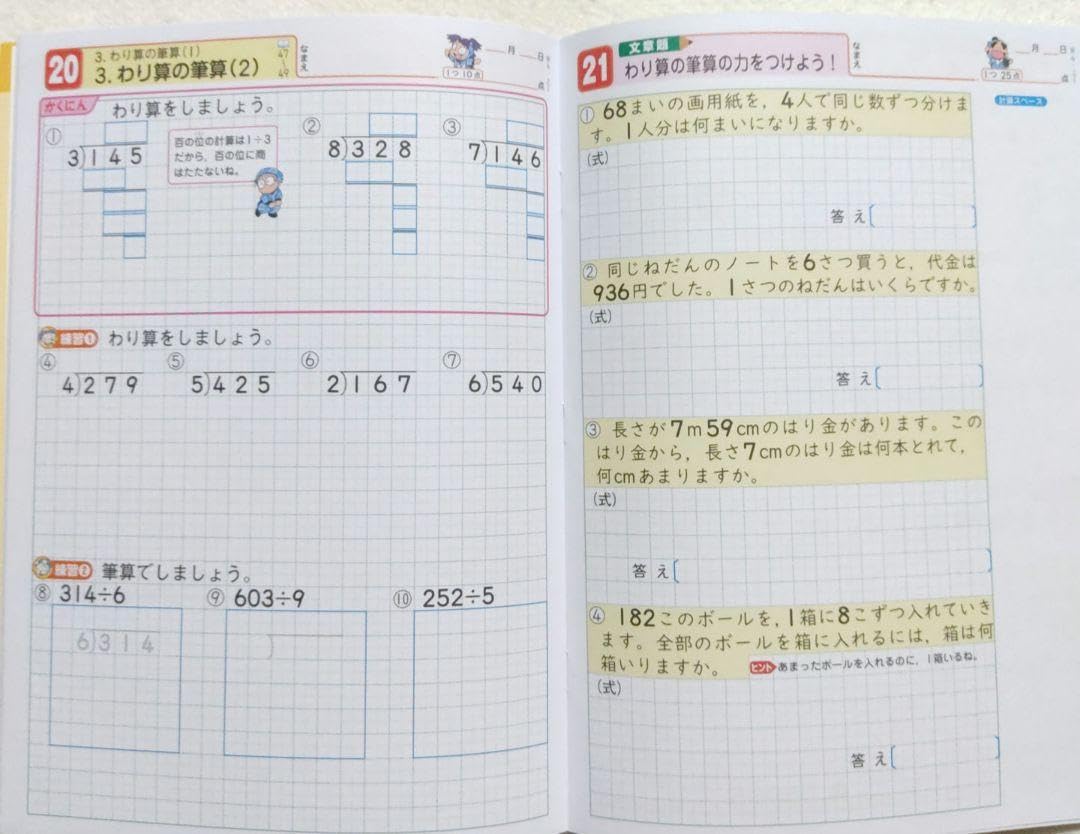 20
3. わり算の筆算(1)
3. わり算の筆算(2)
47
49
なまえ
月 日
1つ10点
点
かくにん わり算をしましょう。
① 3)145
百の位の計算は1÷3
だから、百の位に商
はたたないね。
② 8)328
③ 7)146
練習① わり算をしましょう。
④ 4)279
⑤ 5)425
⑥ 2)167
⑦ 6)540
練習② 筆算でしましょう。
⑧ 314÷6
6)314
⑨ 603÷9
)
⑩ 252÷5
21
文章題
わり算の筆算の力をつけよう!
なまえ
月 日
1つ25点
点
計算スペース
① 68まいの画用紙を、4人で同じ数ずつ分けま
す。1人分は何まいになりますか。
(式)
答え[ ]
② 同じねだんのノートを6さつ買うと、代金は
936円でした。1さつのねだんはいくらですか。
(式)
答え[ ]
③ 長さが7m59cmのはり金があります。この
はり金から、長さ7cmのはり金は何本とれて、
何cmあまりますか。
(式)
答え[ ]
④ 182このボールを、1箱に8こずつ入れていき
ます。全部のボールを箱に入れるには、箱は何
箱いりますか。
ヒント あまったボールを入れるのに、1箱いるね。
(式)
答え[ ]